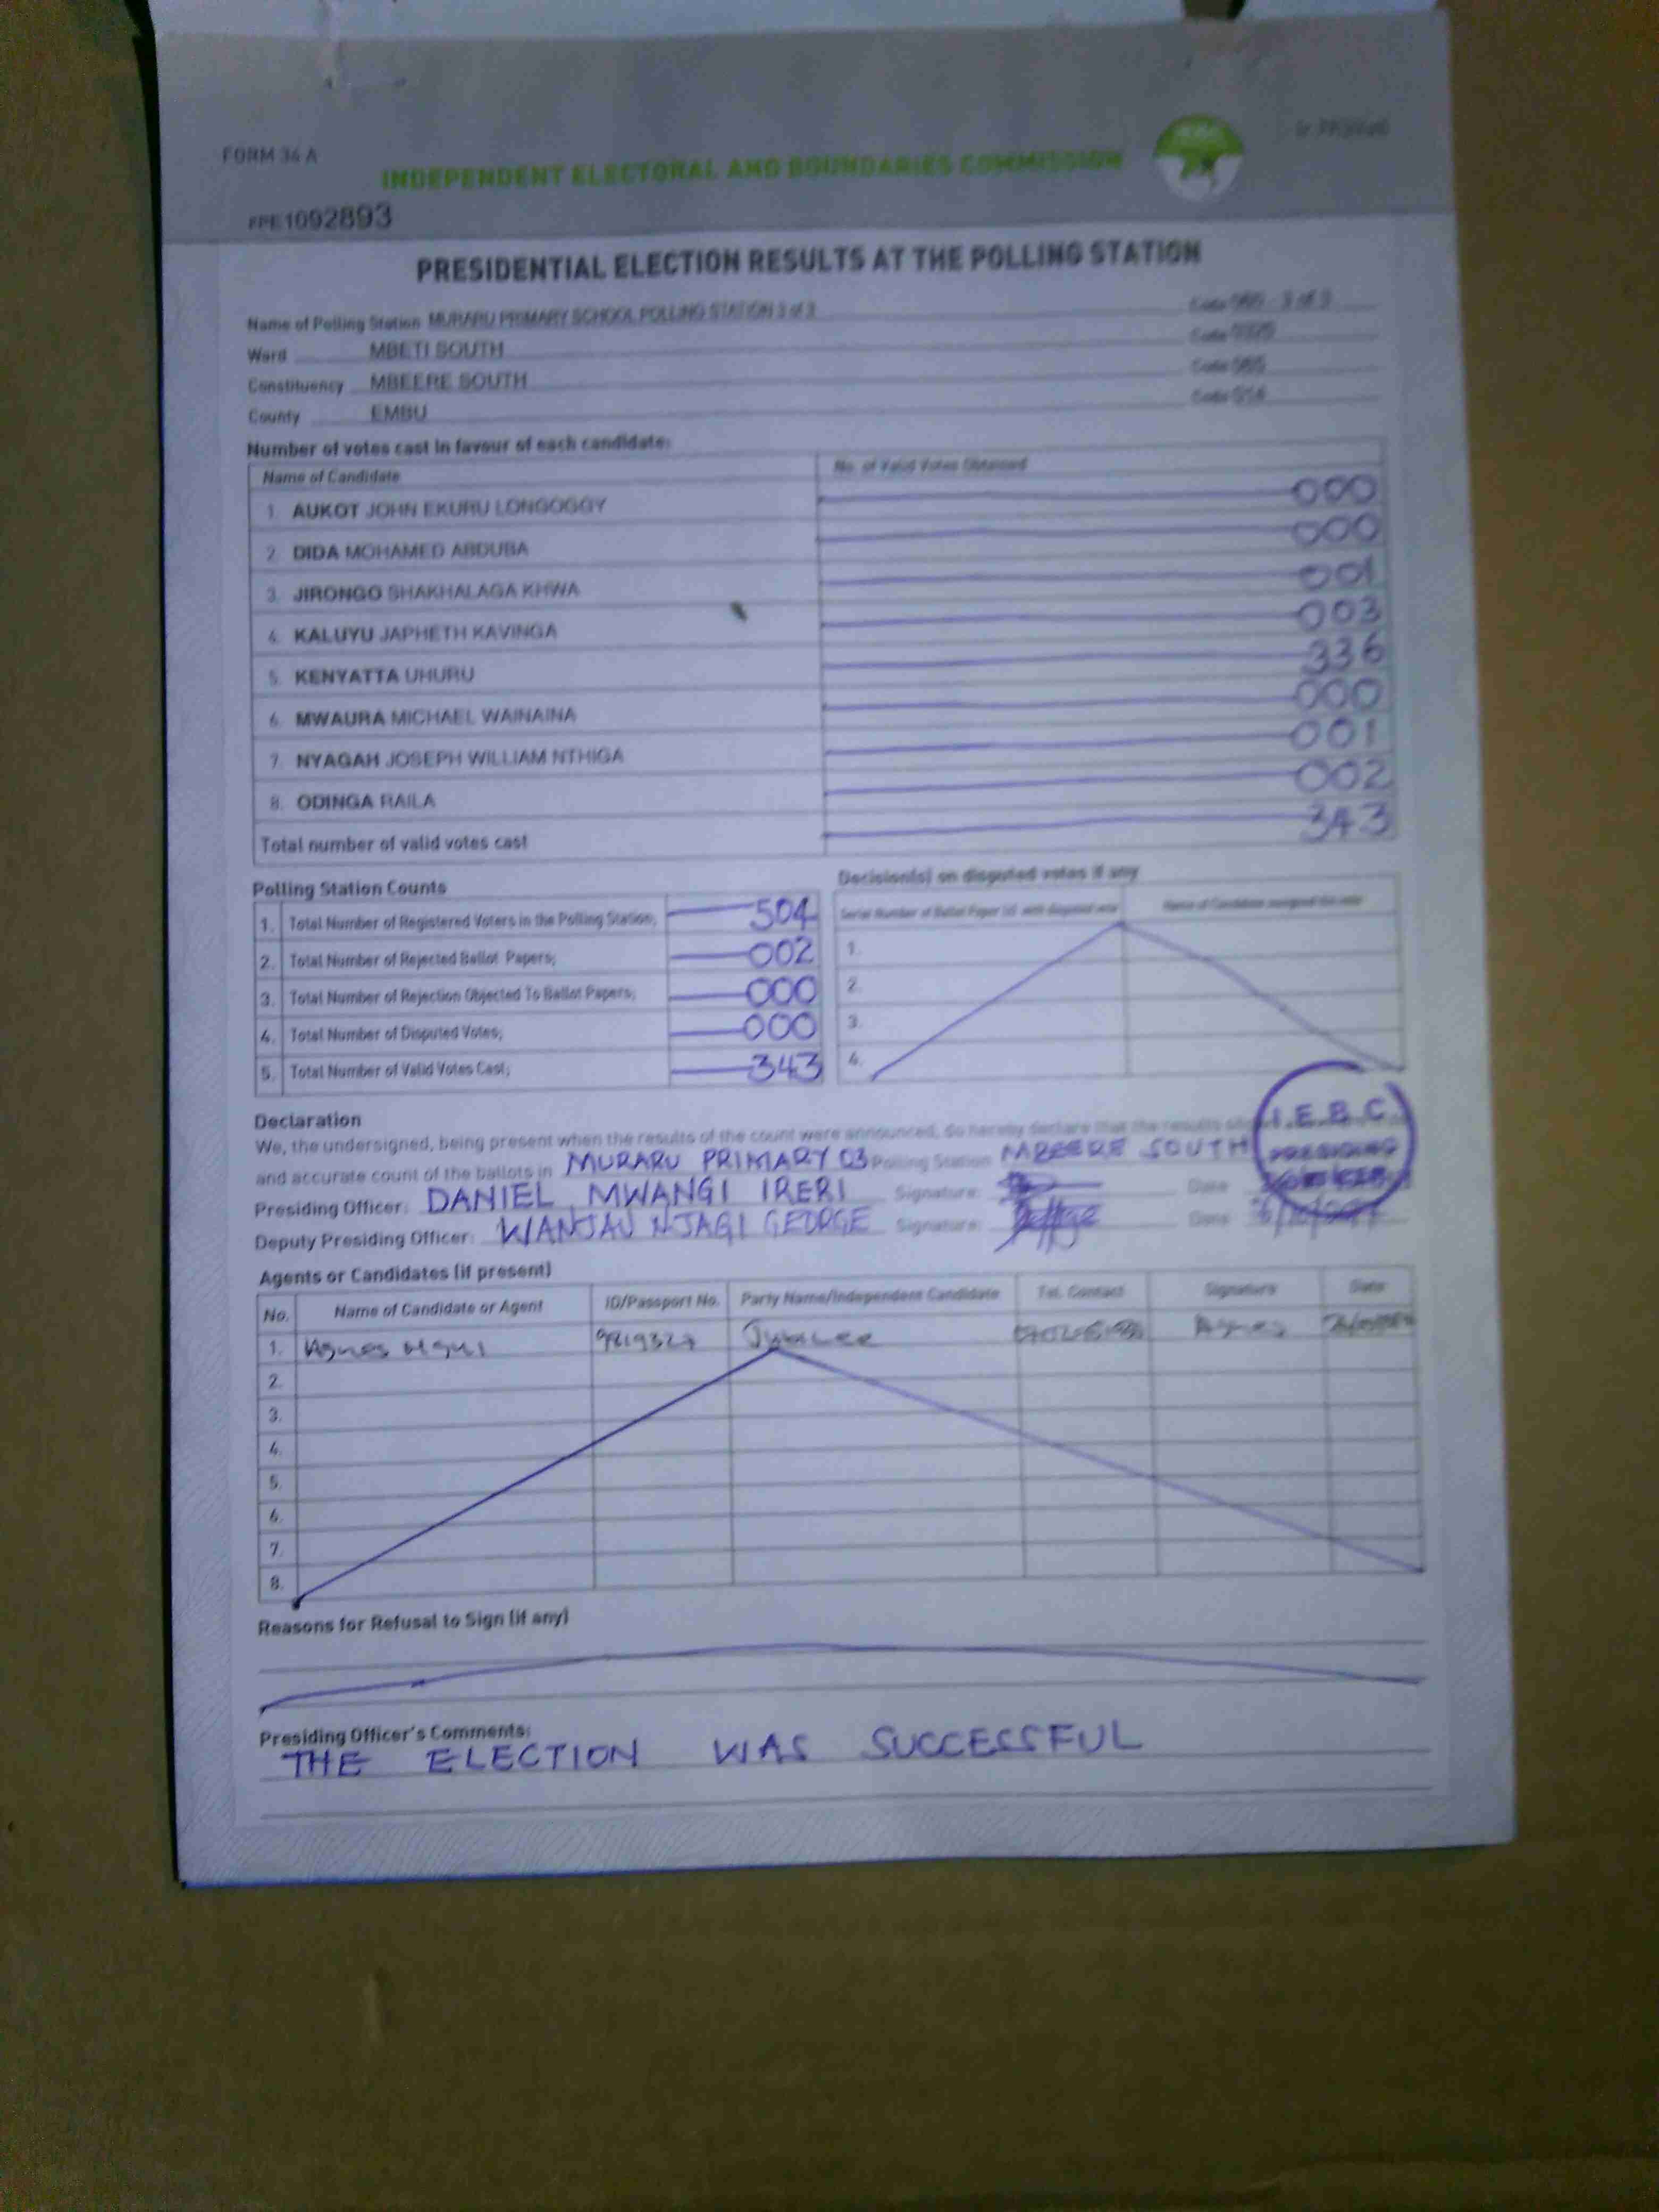 FORM 34 A
INDEPENDENT ELECTORAL AND BOUNDARIES COMMISSION
FPE1092893
PRESIDENTIAL ELECTION RESULTS AT THE POLLING STATION
Name of Polling Station MURARU PRIMARY SCHOOL POLLING STATION 3 of 3
Ward MBETI SOUTH
Constituency MBEERE SOUTH
County EMBU
Number of votes cast in favour of each candidate:
Name of Candidate No. of Valid Votes Obtained
1. AUKOT JOHN EKURU LONGOGGY 000
2. DIDA MOHAMED ABDUBA 000
3. JIRONGO SHAKHALAGA KHWA 001
4. KALUYU JAPHETH KAVINGA 003
5. KENYATTA UHURU 336
6. MWAURA MICHAEL WAINAINA 000
7. NYAGAH JOSEPH WILLIAM NTHIGA 001
8. ODINGA RAILA 002
Total number of valid votes cast 343
Polling Station Counts
1. Total Number of Registered Voters in the Polling Station; 504
2. Total Number of Rejected Ballot Papers; 002
3. Total Number of Rejection Objected To Ballot Papers; 000
4. Total Number of Disputed Votes; 000
5. Total Number of Valid Votes Cast; 343
Decision(s) on disputed votes if any
1.
2.
3.
4.
Declaration
We, the undersigned, being present when the results of the count were announced, do hereby declare that the results
and accurate count of the ballots in MURARU PRIMARY 03 Polling Station MBEERE SOUTH
I.E.B.C
PRESIDING
Presiding Officer: DANIEL MWANGI IRERI Signature: Date
Deputy Presiding Officer: WANJAU NJAGI GEORGE Signature: Date
Agents or Candidates (if present)
No. Name of Candidate or Agent ID/Passport No. Party Name/Independent Candidate Tel. Contact Signature Date
1. Agnes 9819327 Jubilee Agnes
2.
3.
4.
5.
6.
7.
8.
Reasons for Refusal to Sign (if any)
Presiding Officer's Comments:
THE ELECTION WAS SUCCESSFUL